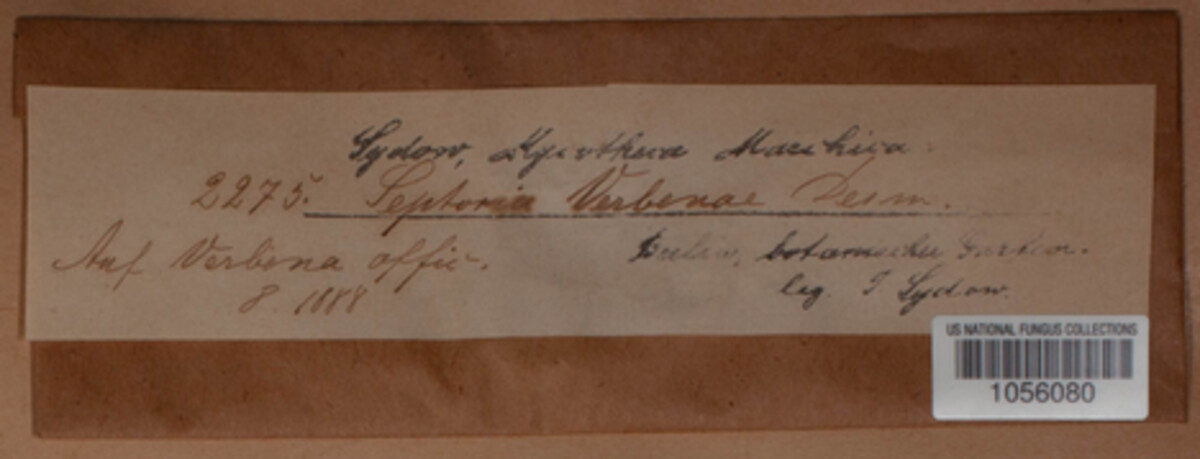 Sydow, Mycotheca Marchica.
2275. Septoria Verbenae Desm.
Auf Verbena offic. botanischer Garten.
8. 1888 leg. P. Sydow.
US NATIONAL FUNGUS COLLECTIONS
1056080